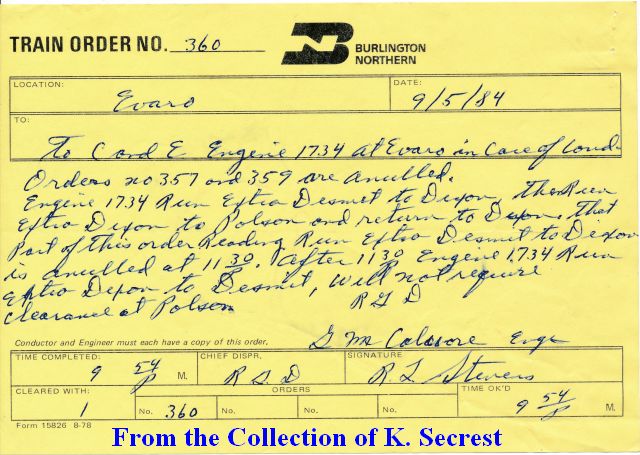 TRAIN ORDER NO. 360
BURLINGTON NORTHERN
LOCATION: Evaro
DATE: 9/5/84
TO:
To C and E Engine 1734 at Evaro in Care of Cond.
Orders no 357 and 359 are anulled.
Engine 1734 Run Extra Desmet to Dixon, then Run
Extra Dixon to Polson and return to Dixon. that
Part of this order Reading Run Extra Desmit to Dixon
is anulled at 11 30. after 11 30 Engine 1734 Run
Extra Dixon to Desmit, will not require
clearance at Polson
R G D
Conductor and Engineer must each have a copy of this order.
G M Engr
TIME COMPLETED: 9 54 P M.
CHIEF DISPR, R G D
SIGNATURE R L Stevens
TIME OK'D 9 54 P M.
CLEARED WITH: 1
ORDERS
No. 360 No. No. No.
Form 15826 8-78
From the Collection of K. Secrest